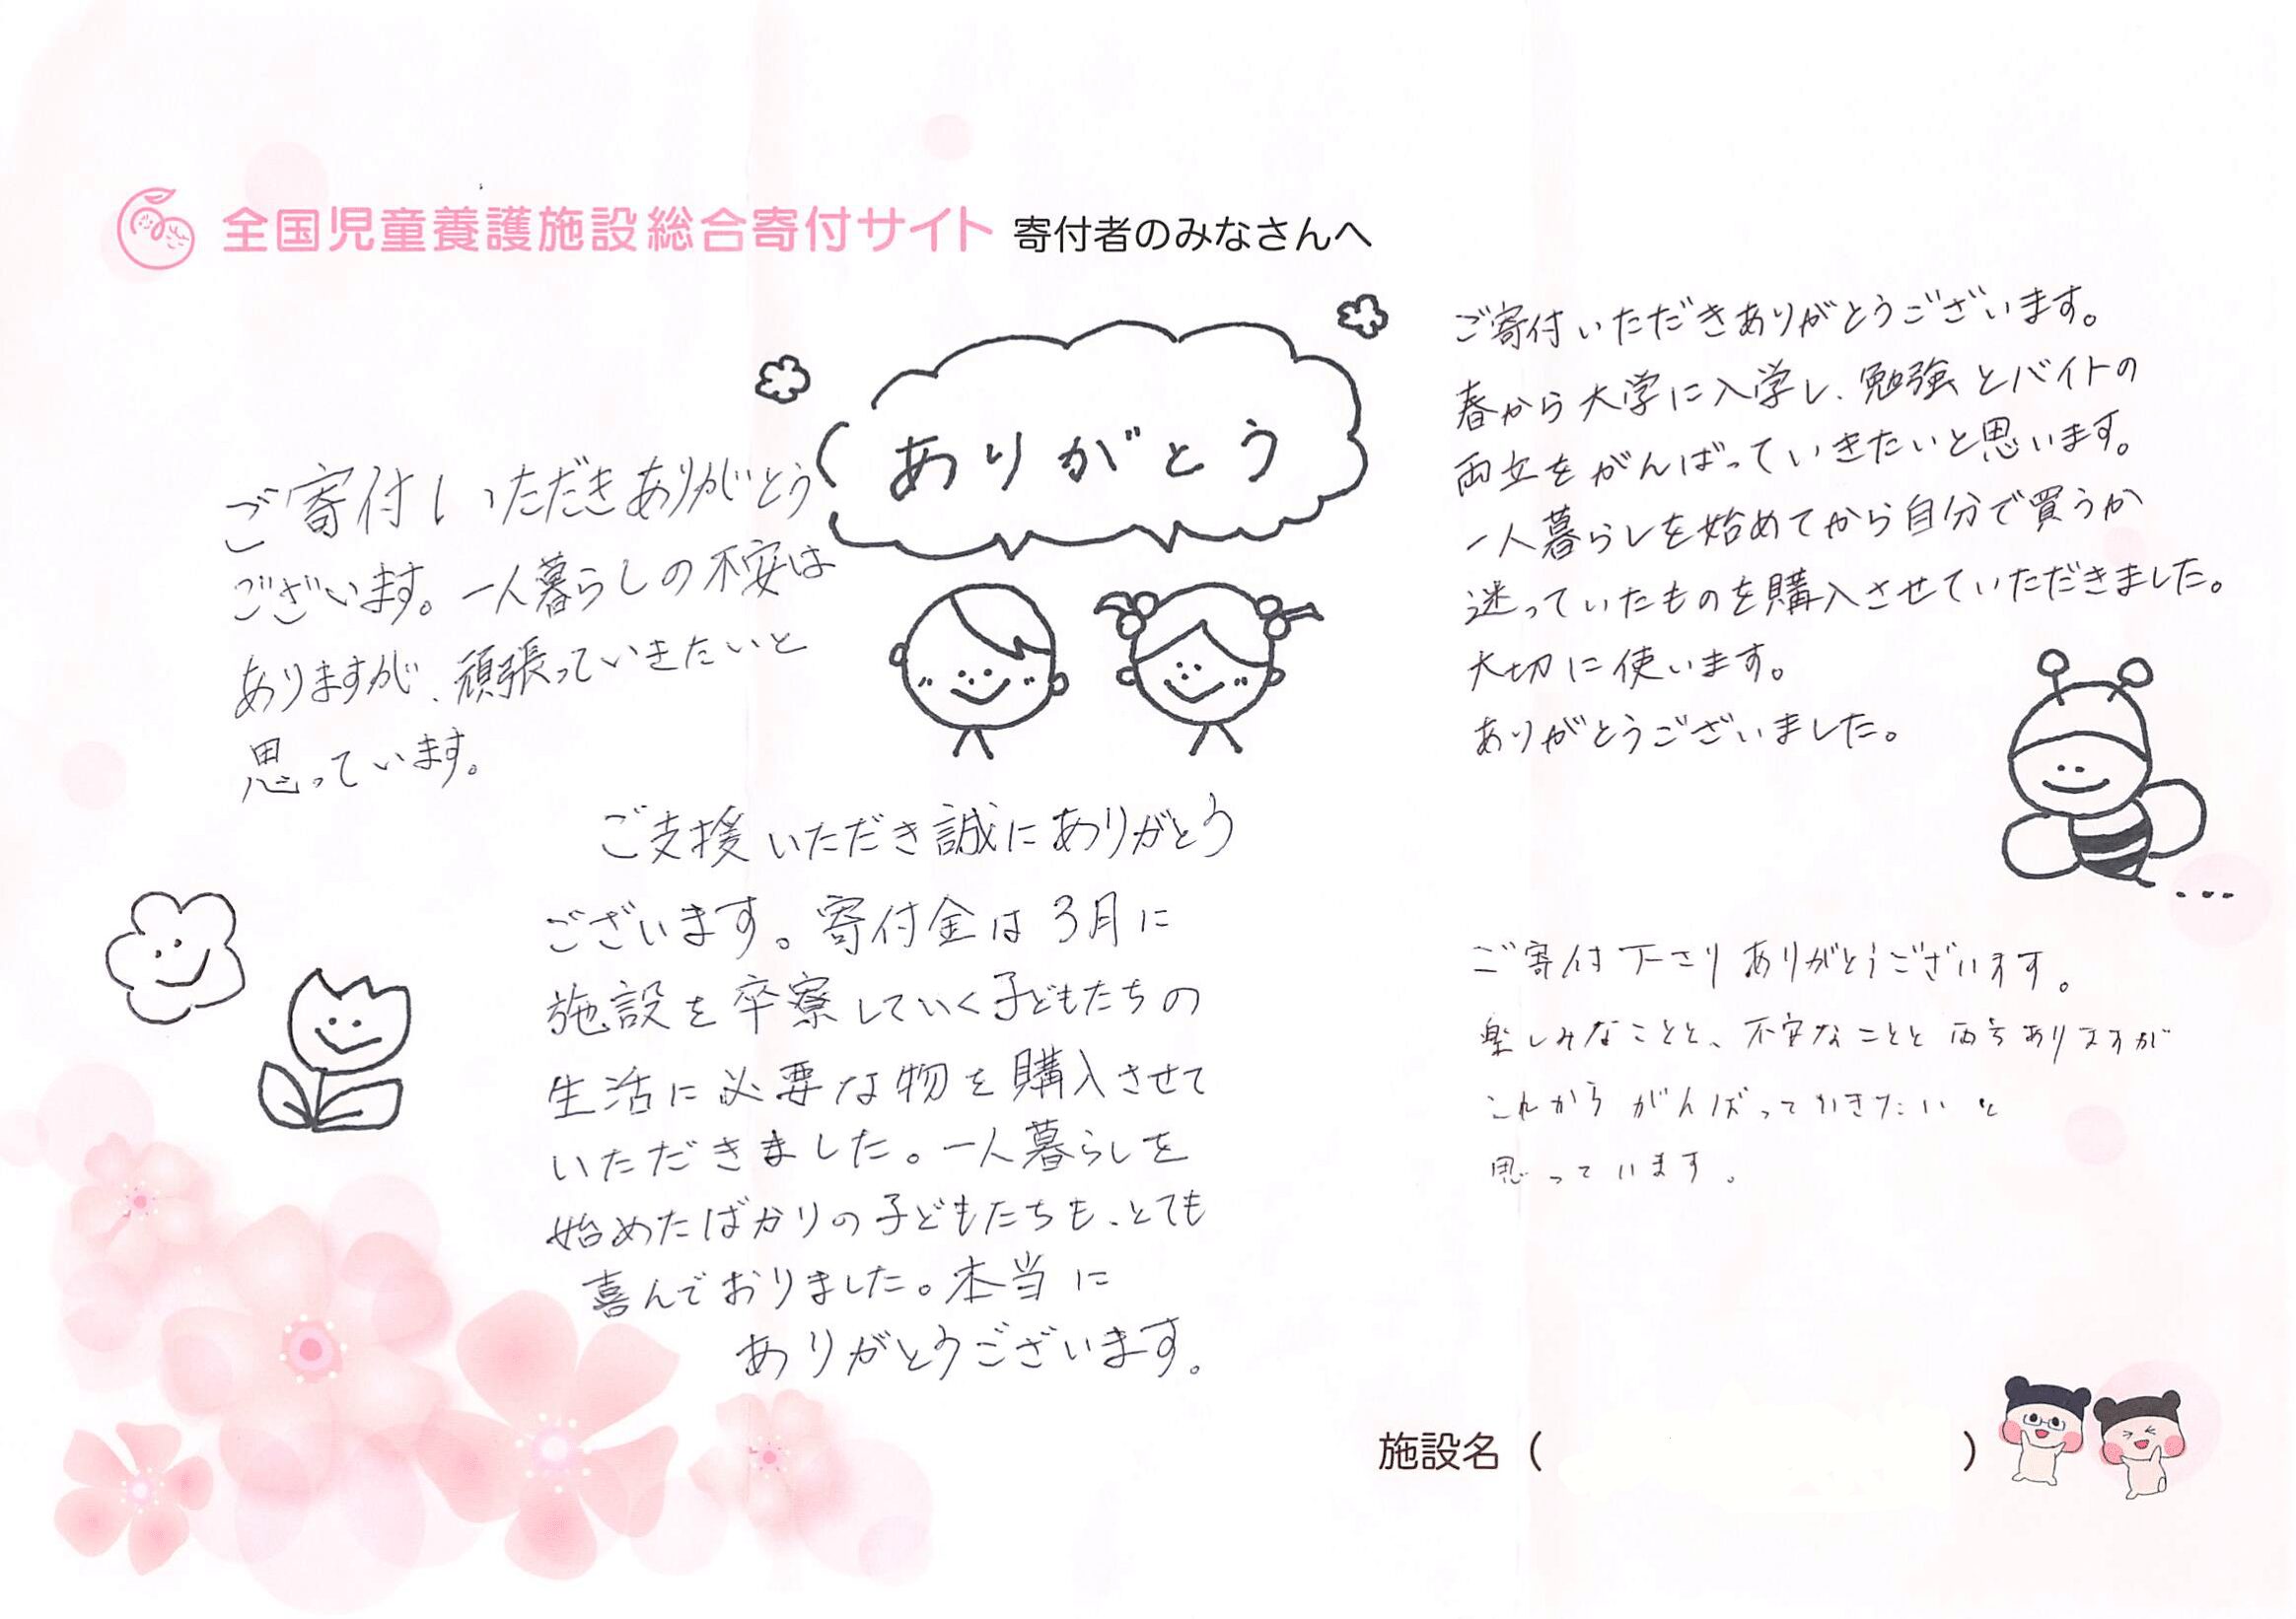 全国児童養護施設総合寄付サイト 寄付者のみなさんへ
ありがとう
ご寄付いただきありがとう
ございます。一人暮らしの不安は
ありますが、頑張っていきたいと
思っています。
ご支援いただき誠にありがとう
ございます。寄付金は3月に
施設を卒寮していく子どもたちの
生活に必要な物を購入させて
いただきました。一人暮らしを
始めたばかりの子どもたちも、とても
喜んでおりました。本当に
ありがとうございます。
ご寄付いただきありがとうございます。
春から大学に入学し、勉強とバイトの
両立をがんばっていきたいと思います。
一人暮らしを始めてから自分で買うか
迷っていたものを購入させていただきました。
大切に使います。
ありがとうございました。
ご寄付下さりありがとうございます。
楽しみなことと、不安なことと両方ありますが
これからがんばっていきたいと
思っています。
施設名（ ）